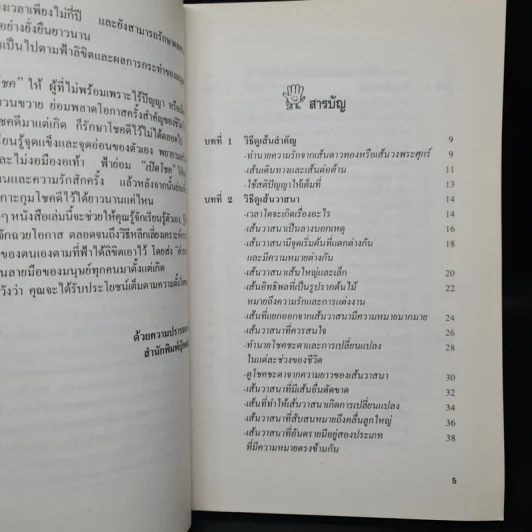 งเวลาเพียงไม่กี่ปี และยังสามารถรักษา
อย่างยั่งยืนยาวนาน
เป็นไปตามฟ้าลิขิตและผลการกระทำของ
โชค" ให้ ผู้ที่ไม่พร้อมเพราะไร้ปัญญา หรือ
วนขวาย ย่อมพลาดโอกาสครั้งสำคัญของชีวิต
โชคดีมาแต่เกิด ก็รักษาโชคดีไว้ไม่ได้ตลอด
รียนรู้จุดแข็งและจุดอ่อนของตัวเอง
และไม่งอมืองอเท้า ฟ้าย่อม "เปิดโชค" ให้
านและความรักสักครั้ง แล้วหลังจากนั้น
กาะกุมโชคดีไว้ได้ยาวนานแค่ไหน
ๆ หนังสือเล่มนี้จะช่วยให้คุณรู้จักเรียนรู้ตัวเอง
จักฉวยโอกาส ตลอดจนถึงวิธีหลีกเลี่ยง
ของตนเองตามที่ฟ้าได้ลิขิตเอาไว้ โดยส่ง
นลายมือของมนุษย์ทุกคนมาตั้งแต่เกิด
วังว่า คุณจะได้รับประโยชน์เต็มตามความตั้งใจ
ด้วยความปรารถนา
สำนักพิมพ์
สารบัญ
บทที่ 1 วิธีดูเส้นสำคัญ 9
-ทำนายความรักจากเส้นดาวทองหรือเส้นวงพระศุกร์ 9
-เส้นเดินทางและเส้นต่อต้าน 11
-ใช้สติปัญญาให้เต็มที่ 13
บทที่ 2 วิธีดูเส้นวาสนา 14
-เวลาใดจะเกิดเรื่องอะไร 14
-เส้นวาสนาเป็นลางบอกเหตุ 14
-เส้นวาสนามีจุดเริ่มต้นที่แตกต่างกัน 16
และมีความหมายต่างกัน
-เส้นวาสนาเส้นใหญ่และเล็ก 20
-เส้นอิทธิพลที่เป็นรูปรากต้นไม้ 22
หมายถึงความรักและการแต่งงาน
-เส้นที่แยกออกจากเส้นวาสนามีความหมายมากมาย 24
-เส้นวาสนาที่ควรสนใจ 26
-ทำนายโชคชะตาและการเปลี่ยนแปลง 28
ในแต่ละช่วงของชีวิต
-ดูโชคชะตาจากความยาวของเส้นวาสนา 30
-เส้นวาสนาที่มีเส้นอื่นตัดขาด 32
-เส้นที่ทำให้เส้นวาสนาเกิดการเปลี่ยนแปลง 34
-เส้นวาสนาที่สับสนหมายถึงคลื่นลูกใหญ่ 36
-เส้นวาสนาที่อันตรายมีอยู่สองประเภท 38
ที่มีความหมายตรงข้ามกัน
5